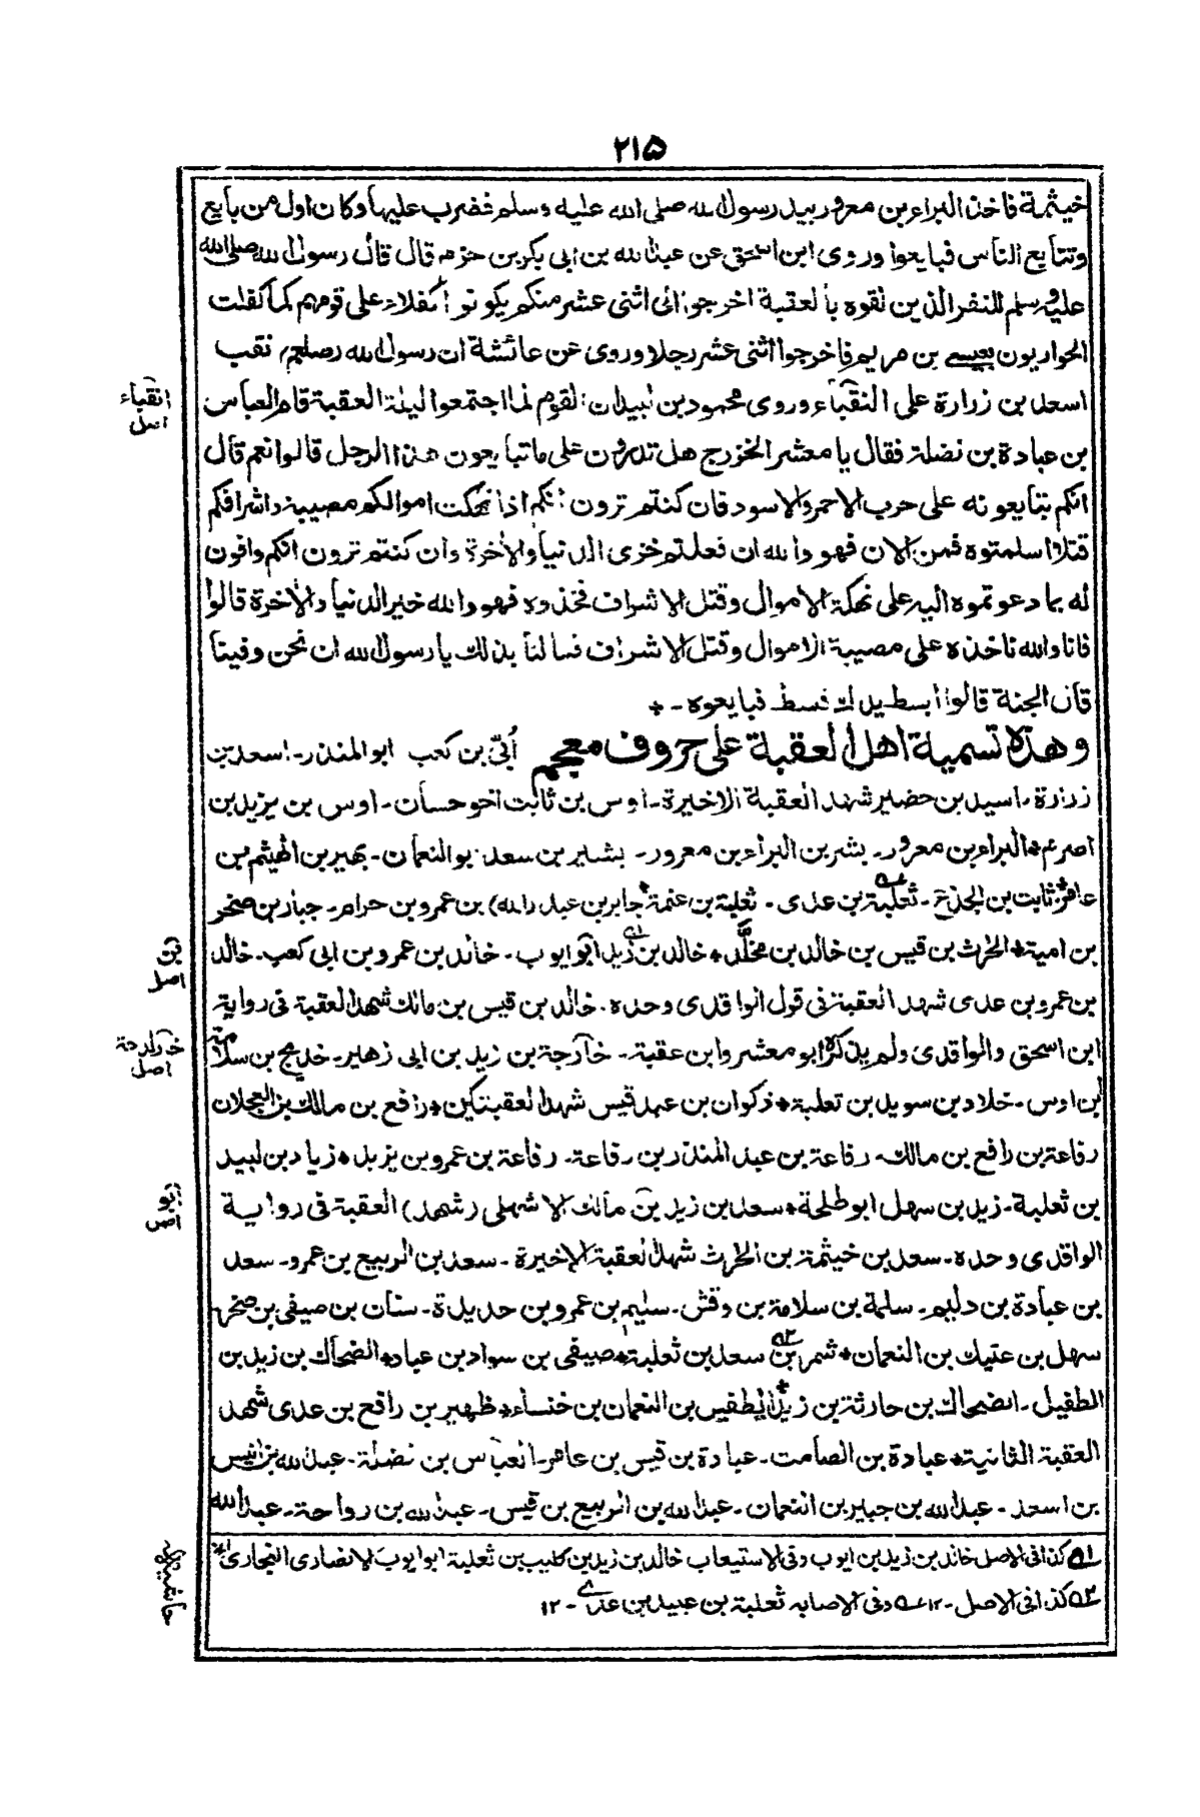 ٢١۵
خيثمة فاخذ البراء بن معرور بيد رسول الله صلى الله عليه وسلم فضرب عليها وكان اول من بايع
وتتابع الناس فبايعوا وروى ابن اسحق عن عبد الله بن ابى بكر بن حزم قال قال رسول الله صلى الله
عليه وسلم للنفر الذين لقوه بالعقبة اخرجوا الى اثنى عشر منكم يكونوا كفلاء على قومهم كما كفلت
الحواريون بعيسى بن مريم فاخرجوا اثنى عشر رجلا وروى عن عائشة ان رسول الله (صلعم) نقب
اسعد بن زرارة على النقباء وروى محمود بن لبيد ان القوم لما اجتمعوا ليلة العقبة قام العباس
بن عبادة بن نضلة فقال يا معشر الخزرج هل تدرون على ما تبايعون هذا الرجل قالوا نعم قال
انكم تبايعونه على حرب الاحمر والاسود فان كنتم ترون انكم اذا نهكت اموالكم مصيبة واشرافكم
قتلا اسلمتوه فمن الان فهو والله ان فعلتم خزى الدنيا والأخرة وان كنتم ترون انكم وافون
له بما دعوتموه اليه على نهكة الاموال وقتل الاشراف فخذوه فهو والله خير الدنيا والأخرة قالوا
فانا والله ناخذه على مصيبة الاموال وقتل الاشراف فما لنا بذلك يا رسول الله ان نحن وفينا
قال الجنة قالوا ابسط يدك فبسط فبايعوه - *
وهذه تسمية اهل العقبة على حروف معجم أُبّى بن كعب ابو المنذر - اسعد بن
زرارة - اسيد بن حضير شهد العقبة الاخيرة - اوس بن ثابت اخو حسان - اوس بن يزيد بن
اصرم * البراء بن معرور - بشر بن البراء بن معرور - بشير بن سعد ابو النعمان - بهير بن الهيثم بن
عامر * ثابت بن الجذع - ثعلبة بن عدى - ثعلبة بن عنمة * جابر بن عبد (الله) بن عمرو بن حرام - جبار بن صخر
بن امية * الحرث بن قيس بن خالد بن مخلّد * خالد بن زيد ابو ايوب - خالد بن عمرو بن ابى كعب - خالد
بن عمرو بن عدى شهد العقبة فى قول الواقدى وحده - خالد بن قيس بن مالك شهد العقبة فى رواية
ابن اسحق والواقدى ولم يذكره ابو معشر وابن عقبة - خارجة بن زيد بن ابى زهير - خديج بن سلامة
ابن اوس - خلاد بن سويد بن ثعلبة * ذكوان بن عبد قيس شهد العقبتين * رافع بن مالك بن العجلان
رفاعة بن رافع بن مالك - رفاعة بن عبد المنذر بن رفاعة - رفاعة بن عمرو بن يزيد * زياد بن لبيد
بن ثعلبة - زيد بن سهل ابو طلحة * سعد بن زيد بن مالك الاشهلى (شهد) العقبة فى رواية
الواقدى وحده - سعد بن خيثمة بن الحرث شهد العقبة الاخيرة - سعد بن الربيع بن عمرو - سعد
بن عبادة بن دليم - سلمة بن سلامة بن وقش - سليم بن عمرو بن حديدة - سنان بن صيفى بن صخر
سهل بن عتيك بن النعمان * شمر بن سعد بن ثعلبة * صيفى بن سواد بن عباد * الضحاك بن زيد بن
الطفيل - الضحاك بن حارثة بن زيد * الطفيل بن النعمان بن خنساء * ظهير بن رافع بن عدى شهد
العقبة الثانية * عبادة بن الصامت - عبادة بن قيس بن عامر - العباس بن نضلة - عبد الله بن انيس
بن اسعد - عبد الله بن جبير بن النعمان - عبد الله بن الربيع بن قيس - عبد الله بن رواحة - عبد الله
انقباء
اصل
بن
اصل
خوارجة
اصل
ابو
اص
حاشية
١ه كذا فى الاصل خالد بن زيد بن ايوب وفى الاستيعاب خالد بن زيد بن كليب بن ثعلبة ابو ايوب الانصارى النجارى ١٢
٢ه كذا فى الاصل - ١٢ ه وفى الاصابه ثعلبة بن عبيد بن عدى - ١٢